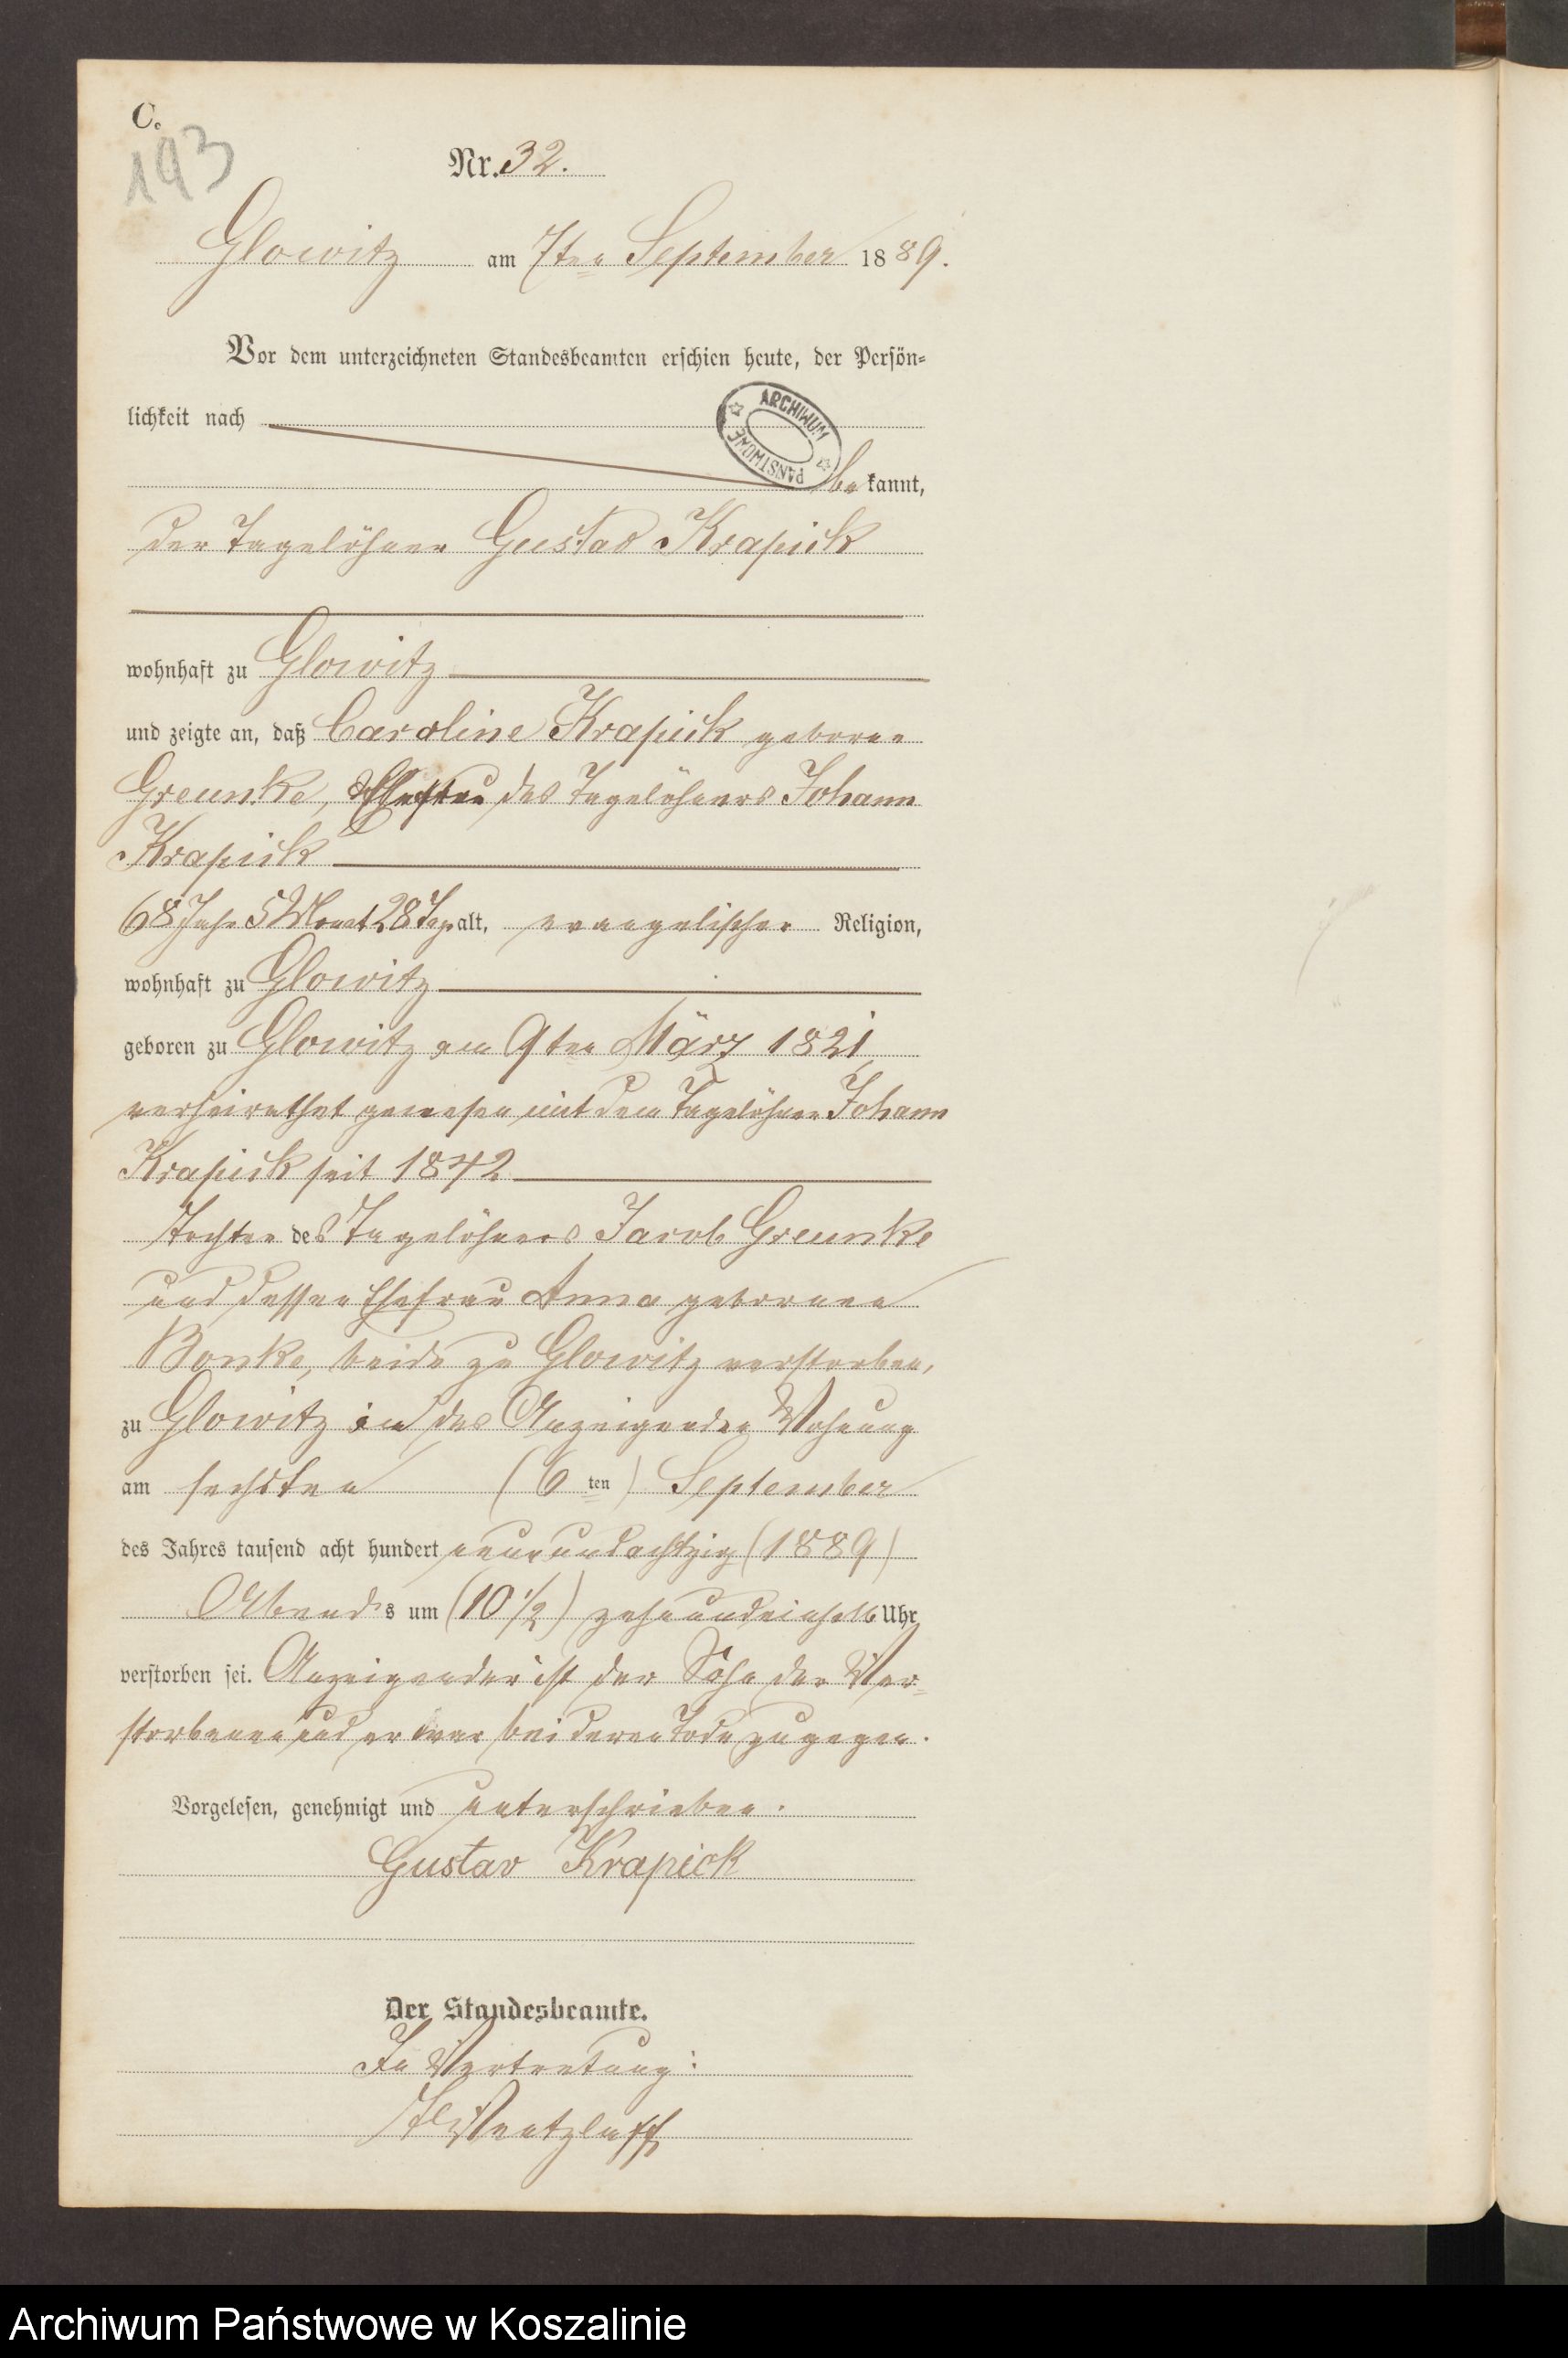 C.
193
Nr. 32.
Glowitz am 7ten September 1889.
Vor dem unterzeichneten Standesbeamten erschien heute, der Persön-
lichkeit nach
ARCHIWUM PAŃSTWOWE
bekannt,
der Tagelöhner Gustav Krapick
wohnhaft zu Glowitz
und zeigte an, daß Caroline Krapick geborne
Greunke, Ehefrau des Tagelöhners Johann
Krapick
68 Jahr 5 Monat 28 Tage alt, evangelischer Religion,
wohnhaft zu Glowitz
geboren zu Glowitz am 9ten März 1821,
verheirathet gewesen mit dem Tagelöhner Johann
Krapick seit 1842
Tochter des Tagelöhners Jacob Greunke
und dessen Ehefrau Anna gebornen
Bonke, beide zu Glowitz verstorben,
zu Glowitz in des Anzeigenden Wohnung
am sechsten (6ten) September
des Jahres tausend acht hundert neunundachtzig (1889)
Abends um (10 1/2) zehnundeinhalb Uhr
verstorben sei. Anzeigender ist der Sohn der Ver-
storbenen und er war bei deren Tode zugegen.
Vorgelesen, genehmigt und unterschrieben.
Gustav Krapick
Der Standesbeamte.
In Vertretung:
Wentzlaff
Archiwum Państwowe w Koszalinie